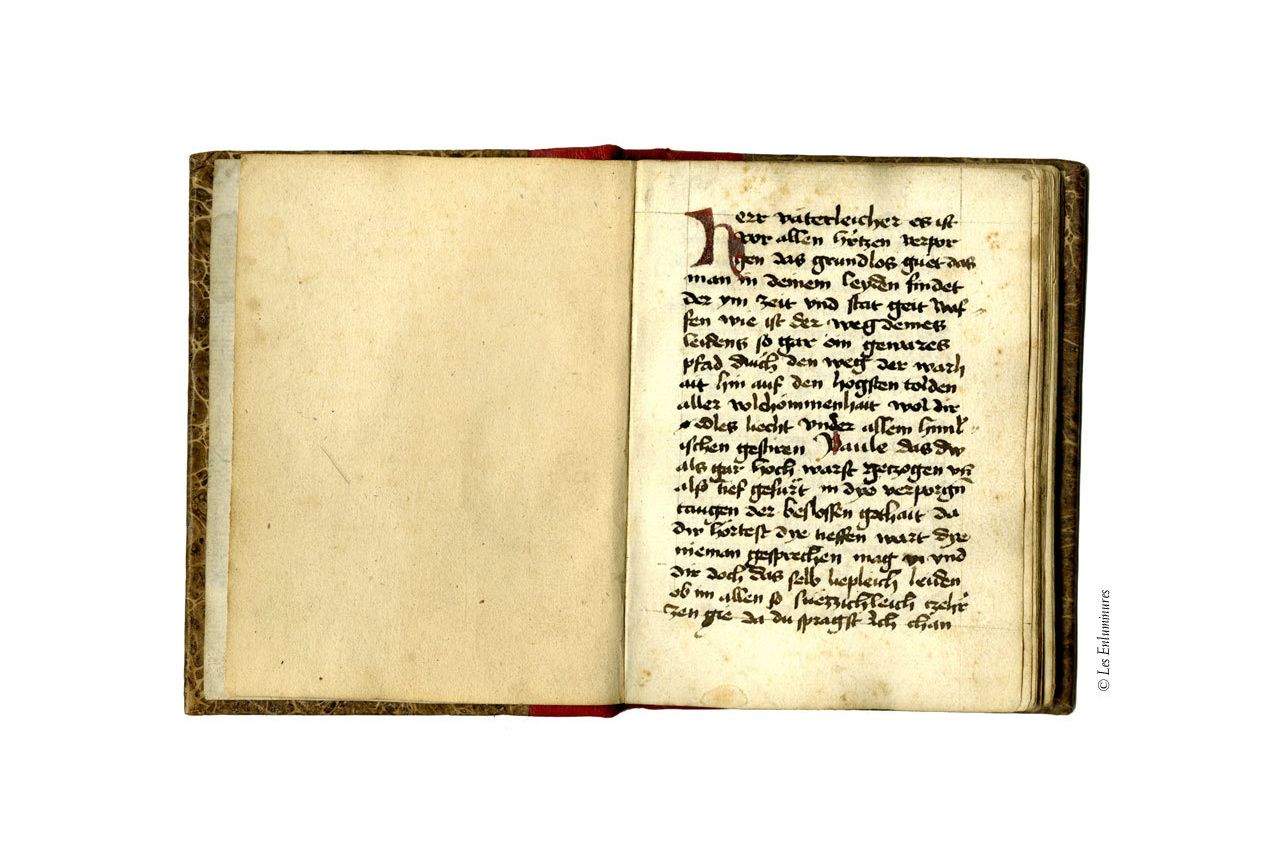 Herr väterleicher es ist
vor allen hertzen verpor
gen das grundlos guet das
man in deinem leyden findet
der ym zeit vnd stat geit waf
fen wie ist der weg deines
leidens so gar ein gewares
pfad durch den weg der warh
ait hin auf den hogsten tolden
aller volchömmenhait wol dir
edles liecht vnder allem himl
ischen gestiren Paule das dw
als gar hoch warst getzogen vn̄
also tief gefürt in dye verporgn̄
taugen der beslossen gothait da
dw hörtest dye tieffen wart dye
nieman gesprechen mag vnd
dir doch das selb liepleich leiden
ob im allen so zw
zen gie da du spragst Ich chan
© Les Enluminures